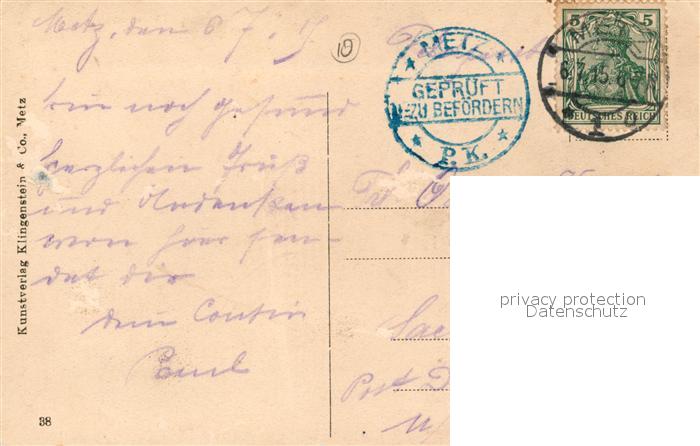 Metz, den 6 7. 15
bin noch gesund
herzlichen Gruß
und Andenken
von hier sen-
det dir
dein Cousin
Paul
Kunstverlag Klingenstein & Co., Metz
38
19
METZ
GEPRÜFT
ZU BEFÖRDERN
P.K.
5 5
DEUTSCHES REICH
METZ
1
Post
privacy protection
Datenschutz